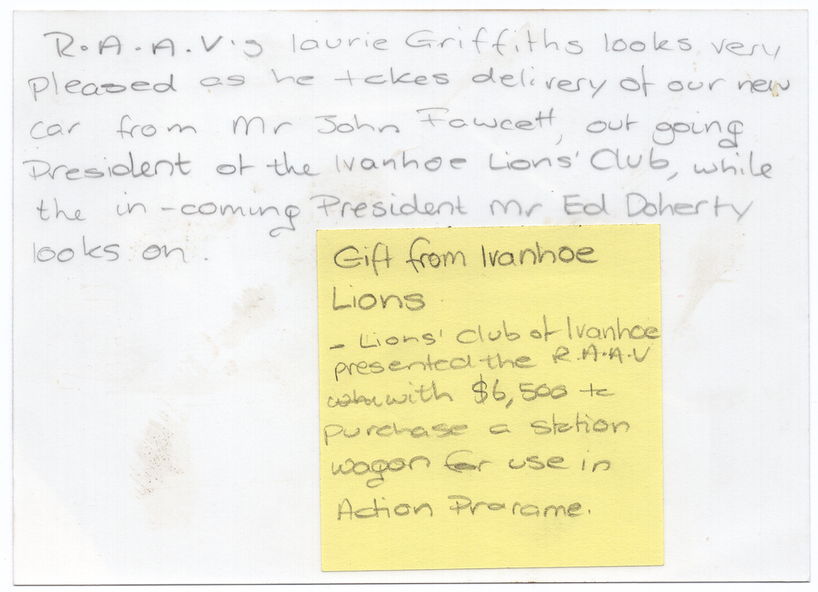 R.A.A.V's laurie Griffiths looks very
pleased as he takes delivery of our new
car from Mr John Fawcett, out going
President of the Ivanhoe Lions' Club, while
the in-coming President Mr Ed Doherty
looks on.
Gift from Ivanhoe
Lions
- Lions' Club of Ivanhoe
presented the R.A.A.V
with $6,500 to
purchase a station
wagon for use in
Action Prarame.